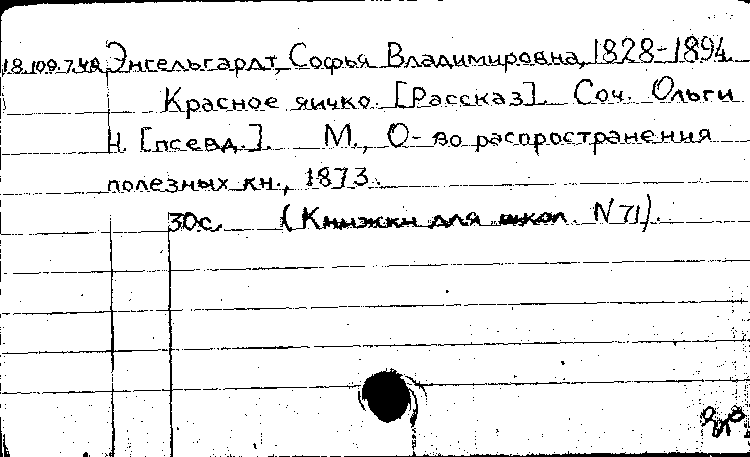 18.109.7.42 Энгельгардт, Софья Владимировна, 1828-1894.
Красное яичко. [Рассказ]. Соч. Ольги
Н. [псевд.]. М., О-во распространения
полезных кн., 1873.
30с. (Книжки для школ. N 71).